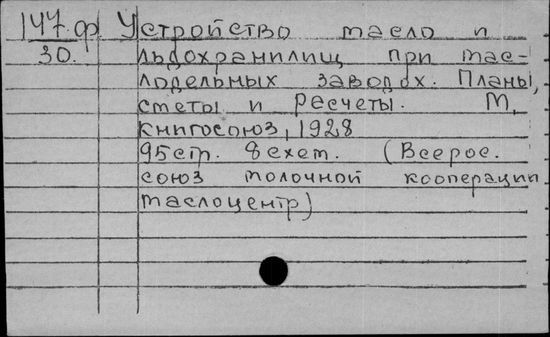 147.ф Устройство масло и
30. льдохранилищ при мас-
лодельных заводах. Планы,
сметы и расчеты. М,
книгосоюз, 1928
95стр. 8схем. (Всерос.
союз молочной кооперации
маслоцентр)